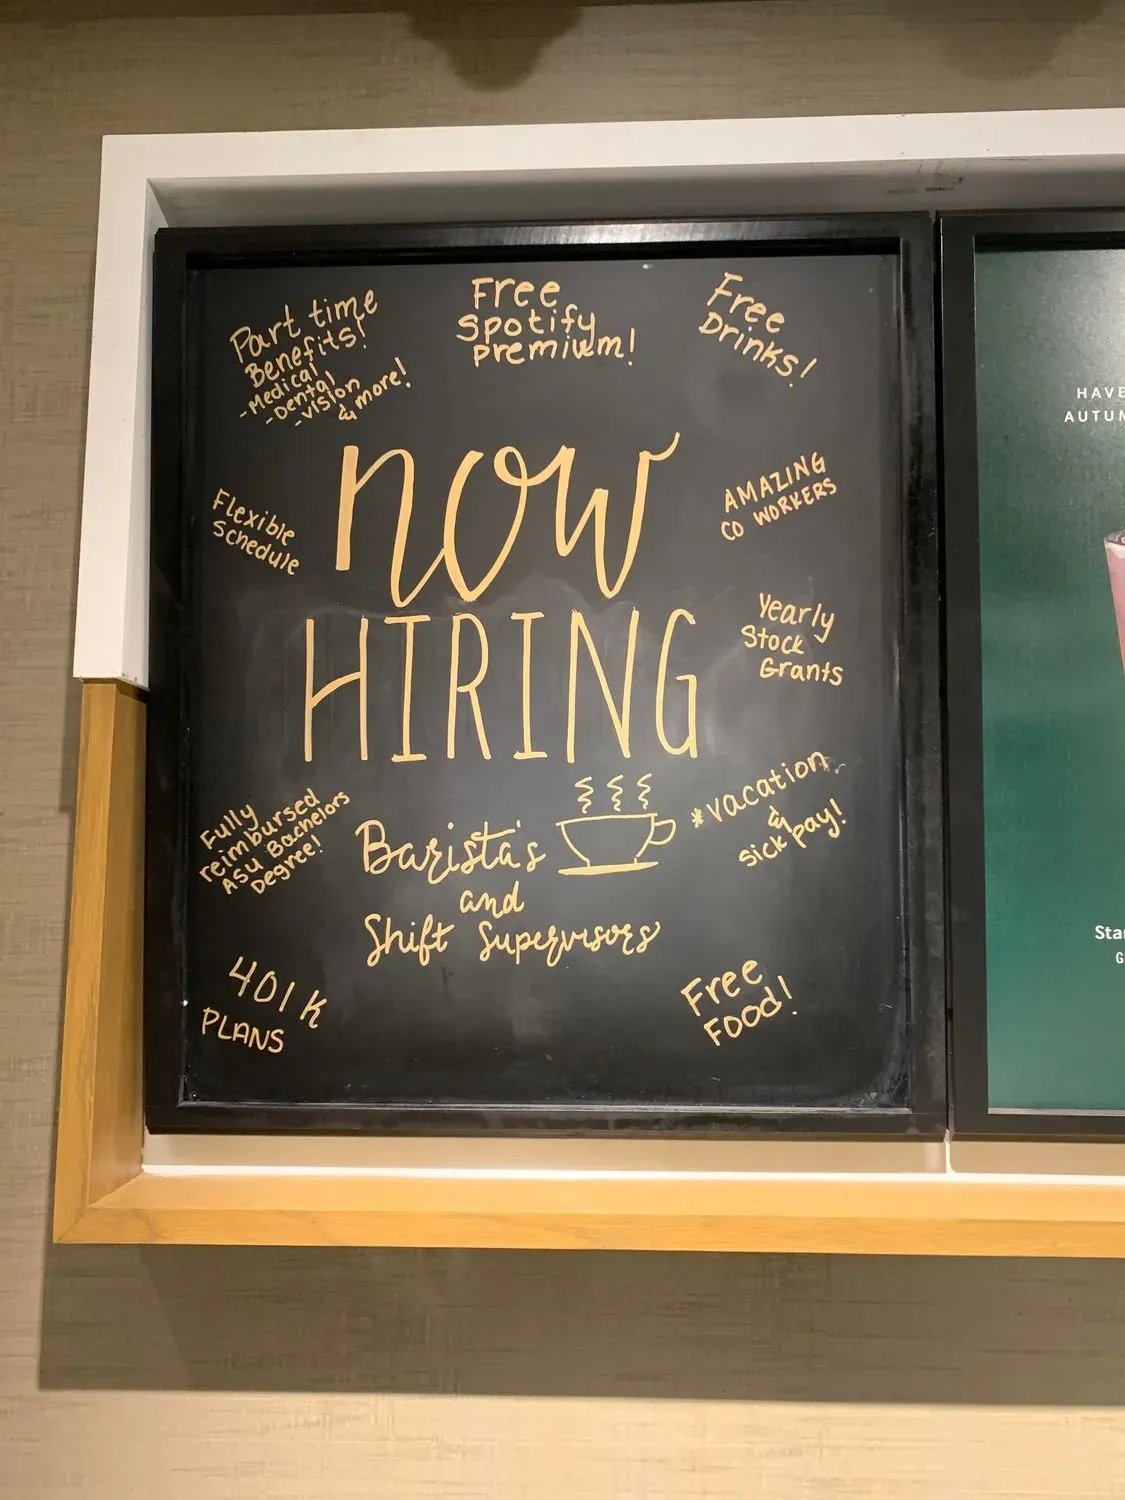 Part time
Benefits!
-Medical
-Dental
-vision
& more!
Free
Spotify
premium!
Free
Drinks!
now
HIRING
Flexible
Schedule
AMAZING
CO WORKERS
Yearly
Stock
Grants
Fully
reimbursed
ASU Bachelors
Degree!
Barista's
and
Shift Supervisors
*vacation
&
sick pay!
401K
PLANS
Free
Food!
HAVE
AUTUM
Sta
G